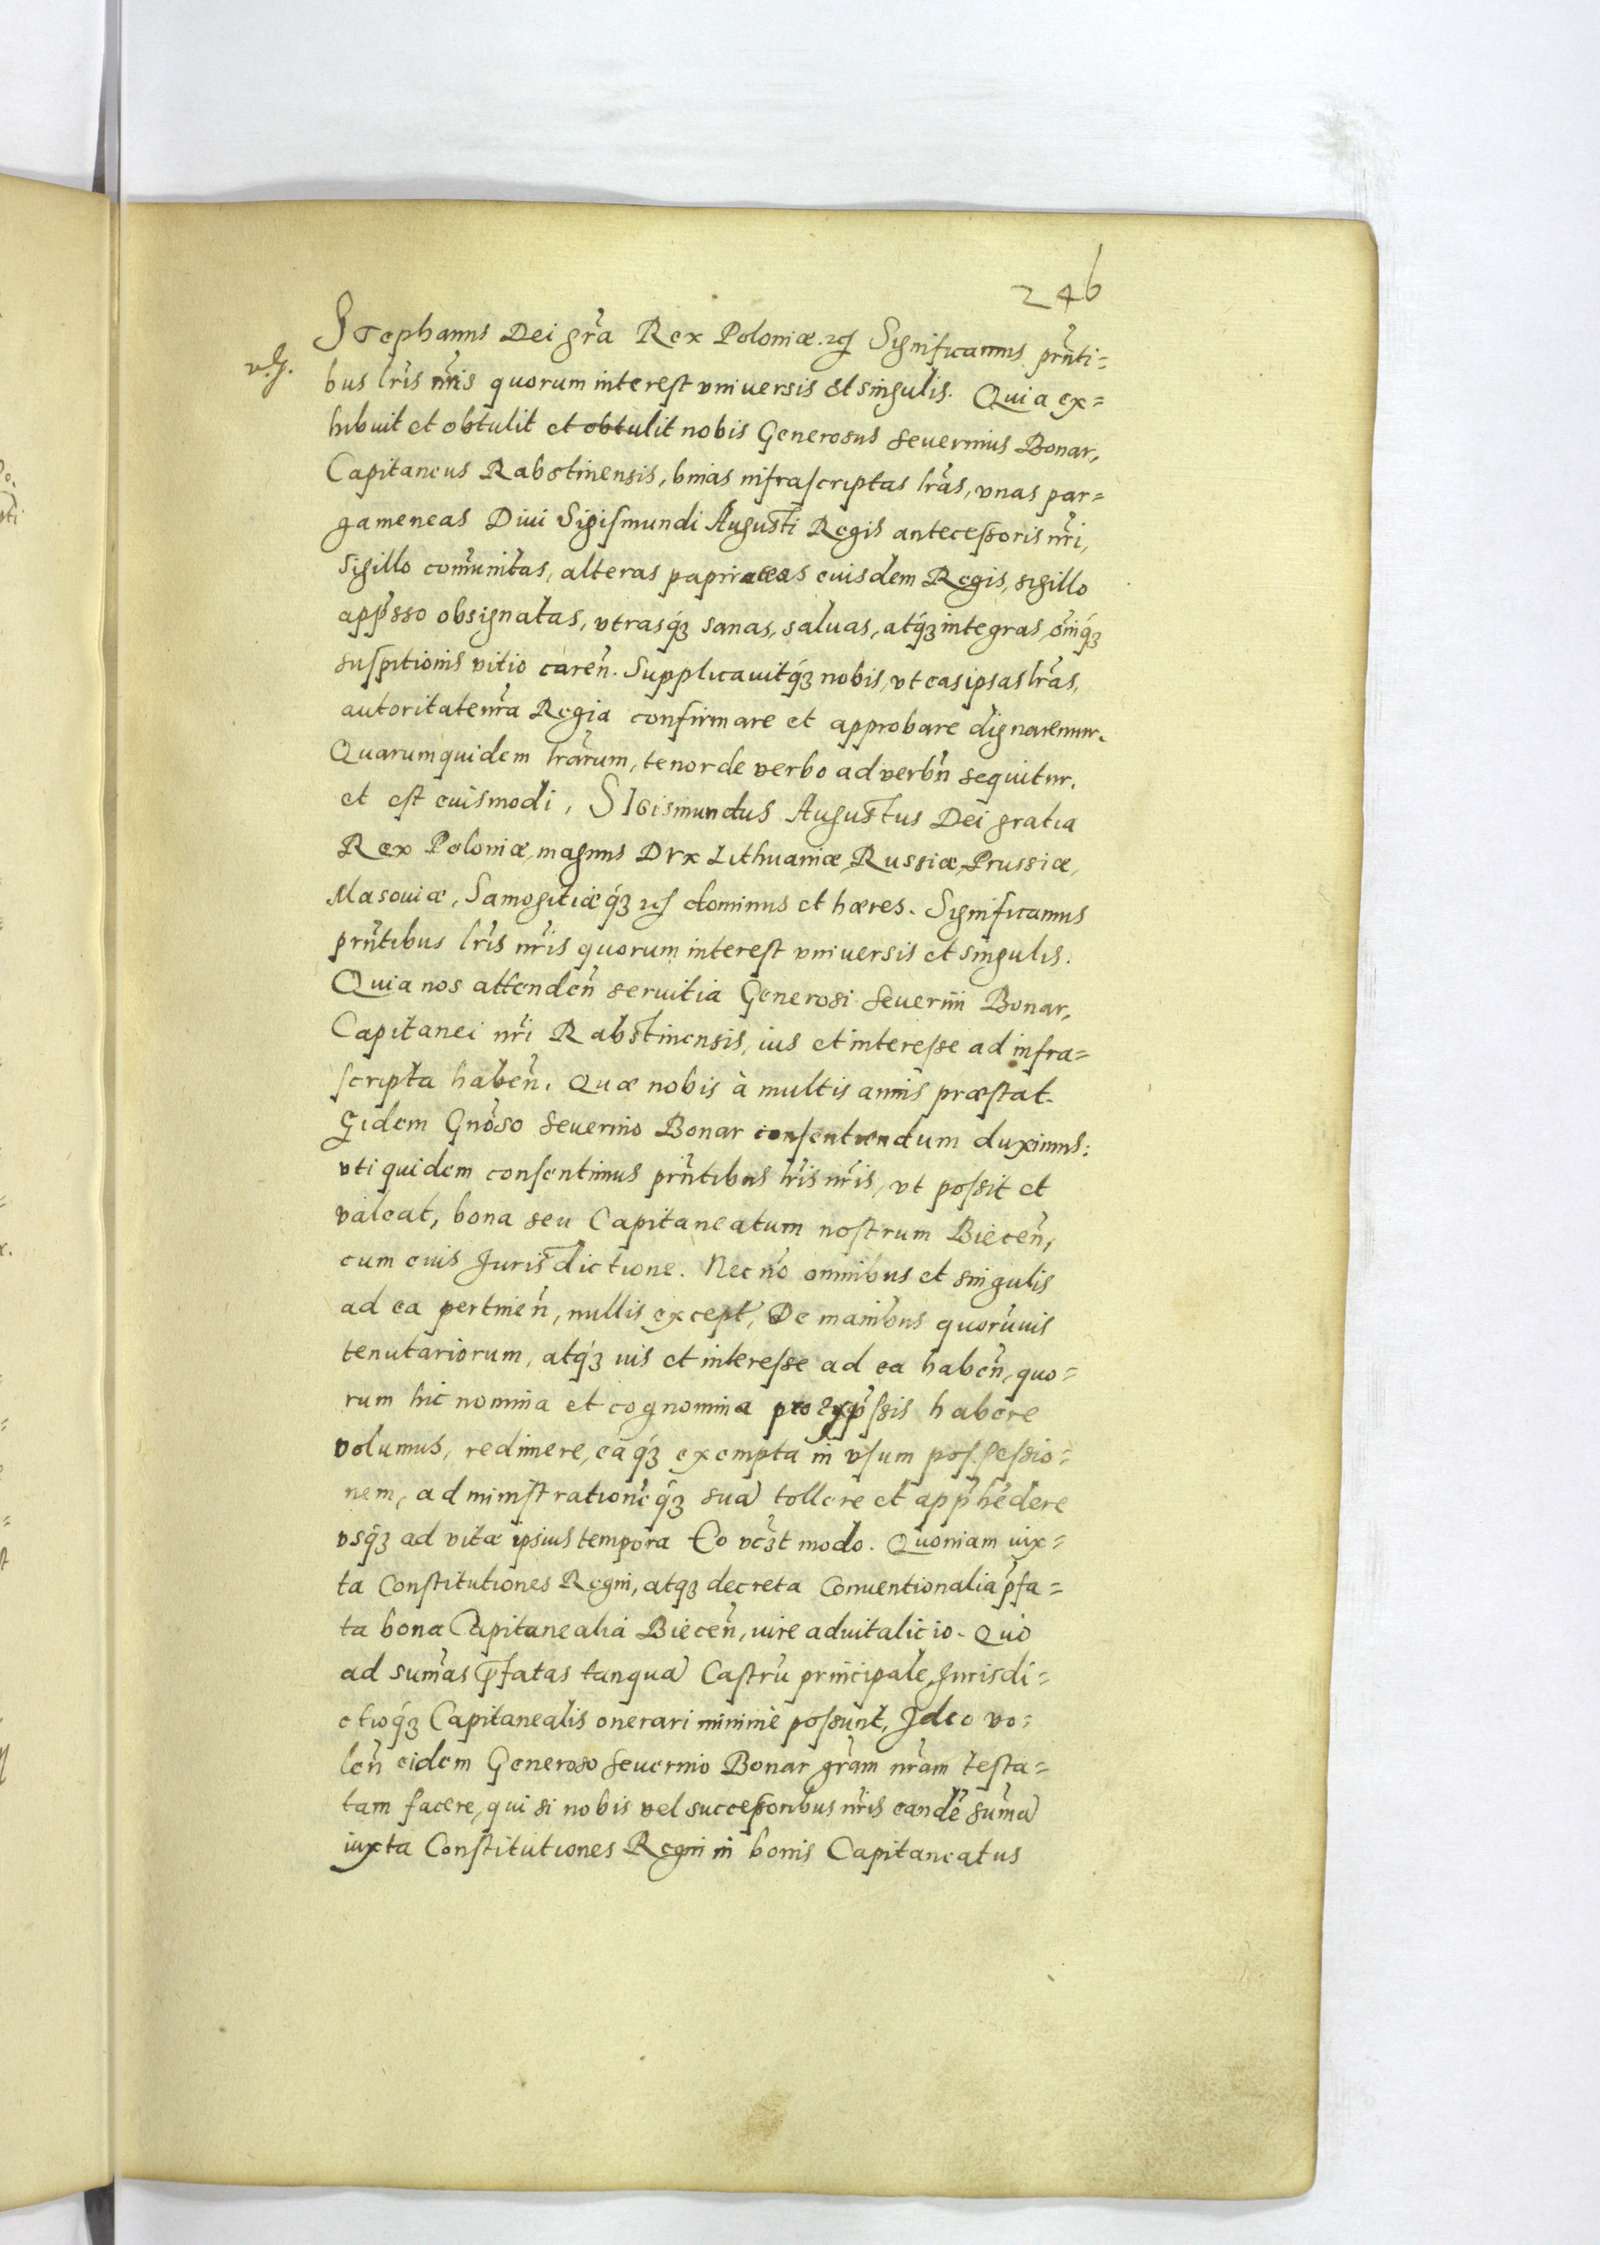 246
Stephanus Dei gr̃a Rex Poloniæ. etc Significamus pr̃nti=
bus lr̃is nr̃is quorum interest vniuersis et singulis. Quia ex=
hibuit et obtulit et obtulit nobis Generosus Seuerinus Bonar,
Capitaneus Rabstinensis, binas infrascriptas lr̃as, vnas par=
gameneas Diui Sigismundi Augusti Regis antecessoris nr̃i,
Sigillo com̃unitas, alteras papiraceas euisdem Regis, sigillo
app̃sso obsignatas, vtrasq́ꝫ sanas, saluas, atq́ꝫ integras, om̃iq́ꝫ
suspitionis vitio careñ. Supplicauitq́ꝫ nobis, vt eas ipsas lr̃as,
autoritate nr̃a Regia confirmare et approbare dignaremur.
Quarumquidem lr̃arum, tenor de verbo ad verbũ sequitur.
et est euismodi, SIGismundus Augustus Dei gratia
Rex Poloniæ, magnus Dvx Lithuaniæ, Russiæ, Prussiæ,
Masouiæ, Samogitiæq́ꝫ etc dominus et hæres. Significamus
pr̃ntibus lr̃is nr̃is quorum interest vniuersis et singulis.
Quia nos attendeñ seruitia Generosi Seuerini Bonar,
Capitanei nr̃i Rabstinensis, ius et interesse ad infra=
scripta habeñ. Quæ nobis à multis annis præstat.
Eidem Gñoso Seuerino Bonar consentiendum duximus:
vti quidem consentimus pr̃ntibus lr̃is nr̃is, vt possit et
valeat, bona seu Capitaneatum nostrum Bieceñ,
cum euis Jurisdictione. Nec nõ omnibus et singulis
ad ea pertineñ, nullis except, De manibus quorũuis
tenutariorum, atq́ꝫ ius et interesse ad ea habeñ, quo=
rum hic nomina et cognomina pro exp̃ssis habere
volumus, redimere, eaq́ꝫ exempta in vsum possessio=
nem, administrationẽq́ꝫ suã tollere et app̃hẽdere
vsq́ꝫ ad vitæ ipsius tempora Eo vcꝫt modo. Quoniam iux=
ta Constitutiones Regni, atqꝫ decreta Conuentionalia p̃fa=
ta bona Capitanealia Bieceñ, iure aduitalicio. Quo
ad sum̃as p̃fatas tanquã Castrũ principale, Jurisdi=
ctioq́ꝫ Capitanealis onerari minimè possunt, Ideo vo=
leñ eidem Generoso Seuerino Bonar gr̃am nr̃am testa=
tam facere, qui si nobis vel successoribus nr̃is eandẽ sum̃ã
iuxta Constitutiones Regni in bonis Capitaneatus